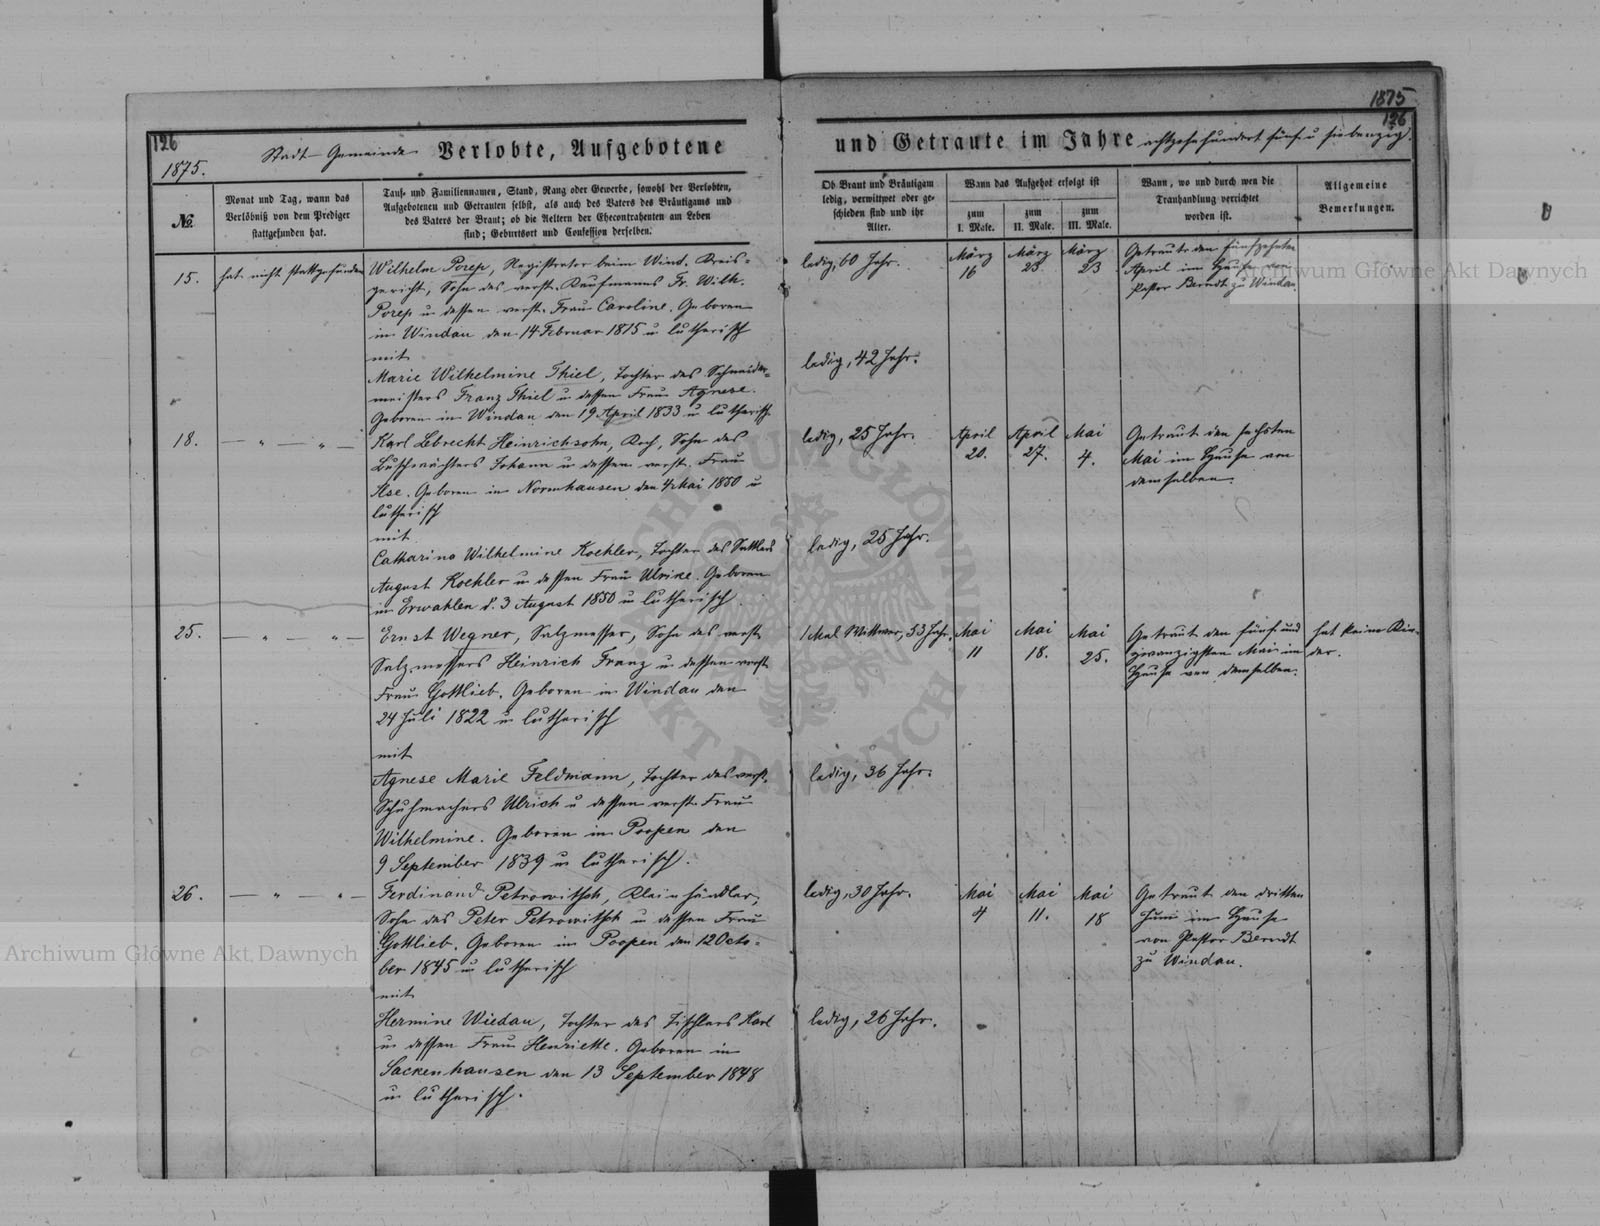 1875
126
126
1875.
Stadt-Gemeinde Verlobte, Aufgebotene
und Getraute im Jahre achtzehnhundert fünf u siebenzig.
№
Monat und Tag, wann das
Verlöbniß von dem Prediger
stattgefunden hat.
Tauf- und Familiennamen, Stand, Rang oder Gewerbe, sowohl der Verlobten,
Aufgebotenen und Getrauten selbst, als auch des Vaters des Bräutigams und
des Vaters der Braut; ob die Aeltern der Ehecontrahenten am Leben
sind; Geburtsort und Confession derselben.
Ob Braut und Bräutigam
ledig, verwittwet oder ge-
schieden sind und ihr
Alter.
Wann das Aufgebot erfolgt ist
zum
I. Male.
zum
II. Male.
zum
III. Male.
Wann, wo und durch wen die
Trauhandlung verrichtet
worden ist.
Allgemeine
Bemerkungen.
15.
hat nicht stattgefunden
Wilhelm Porep, Registrator beim Wind. Kreis-
gericht, Sohn des verst. Kaufmanns Fr. Wilh.
Porep u dessen verst. Frau Caroline. Geboren
in Windau den 14 Februar 1815 u lutherisch
mit
Marie Wilhelmine Thiel, Tochter des Schneider-
meisters Franz Thiel u dessen Frau Agnese.
Geboren in Windau den 19 April 1833 u lutherisch
ledig, 60 Jahr.
ledig, 42 Jahr.
März
16
März
23
März
23
Getraut den fünfzehnten
April im Hause von
Pastor Berndt zu Windau.
18.
— " — " —
Karl Lebrecht Heinrichsohn, Koch, Sohn des
Buschwächters Johann u dessen verst. Frau
Ilse. Geboren in Normhausen den 4 Mai 1850 u
lutherisch
mit
Catharina Wilhelmine Koehler, Tochter des Sattlers
August Koehler u dessen Frau Ulrike. Geboren
in Erwahlen d. 3 August 1850 u lutherisch.
ledig, 25 Jahr.
ledig, 25 Jahr.
April
20.
April
27.
Mai
4.
Getraut den sechsten
Mai im Hause von
demselben.
25.
— " — " —
Ernst Wegner, Salzmesser, Sohn des verst.
Salzmessers Heinrich Franz u dessen verst.
Frau Gottlieb. Geboren in Windau den
24 Juli 1822 u lutherisch
mit
Agnese Marie Feldmann, Tochter des verst.
Schuhmachers Ulrich u dessen verst. Frau
Wilhelmine. Geboren in Poopen den
9 September 1839 u lutherisch.
1 Mal Wittwer, 53 Jahr.
ledig, 36 Jahr.
Mai
11
Mai
18.
Mai
25.
Getraut den fünf und
zwanzigsten Mai im
Hause von demselben.
hat keine Kin-
der.
26.
— " — " —
Ferdinand Petrowitsch, Kleinhändler,
Sohn des Peter Petrowitsch u dessen Frau
Gottlieb. Geboren in Poopen den 12 Octo-
ber 1845 u lutherisch
mit
Hermine Wiedau, Tochter des Tischlers Karl
u dessen Frau Henriette. Geboren in
Sackenhausen den 13 September 1848
u lutherisch.
ledig, 30 Jahr.
ledig, 26 Jahr.
Mai
4
Mai
11.
Mai
18
Getraut den dritten
Juni im Hause
von Pastor Berndt
zu Windau.
Archiwum Główne Akt Dawnych
Archiwum Główne Akt Dawnych
ARCHIWUM GŁÓWNE AKT DAWNYCH